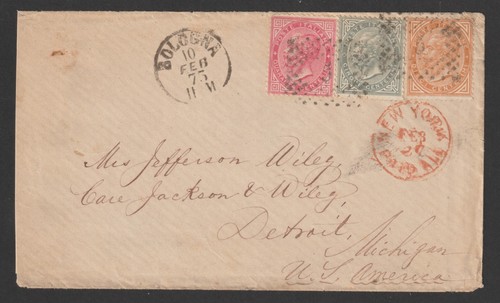 BOLOGNA
10
FEB
75
NEW YORK
FEB
PAID ALL
Mrs Jefferson Wiley,
Care Jackson & Wiley,
Detroit,
Michigan
U.S. America